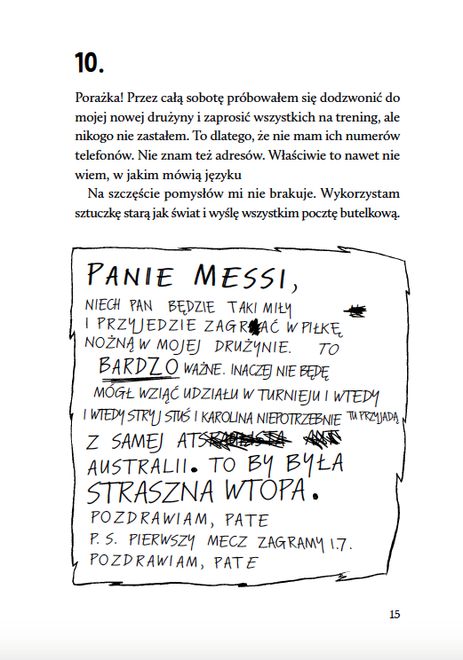 10.
Porażka! Przez całą sobotę próbowałem się dodzwonić do
mojej nowej drużyny i zaprosić wszystkich na trening, ale
nikogo nie zastałem. To dlatego, że nie mam ich numerów
telefonów. Nie znam też adresów. Właściwie to nawet nie
wiem, w jakim mówią języku
Na szczęście pomysłów mi nie brakuje. Wykorzystam
sztuczkę starą jak świat i wyślę wszystkim pocztę butelkową.
PANIE MESSI,
NIECH PAN BĘDZIE TAKI MIŁY
I PRZYJEDZIE ZAGRAĆ W PIŁKĘ
NOŻNĄ W MOJEJ DRUŻYNIE. TO
BARDZO WAŻNE. INACZEJ NIE BĘDĘ
MÓGŁ WZIĄĆ UDZIAŁU W TURNIEJU I WTEDY
I WTEDY STRYJ STUŚ I KAROLINA NIEPOTRZEBNIE TU PRZYJADĄ
Z SAMEJ
AUSTRALII. TO BY BYŁA
STRASZNA WTOPA.
POZDRAWIAM, PATE
P. S. PIERWSZY MECZ ZAGRAMY 1.7.
POZDRAWIAM, PATE
15